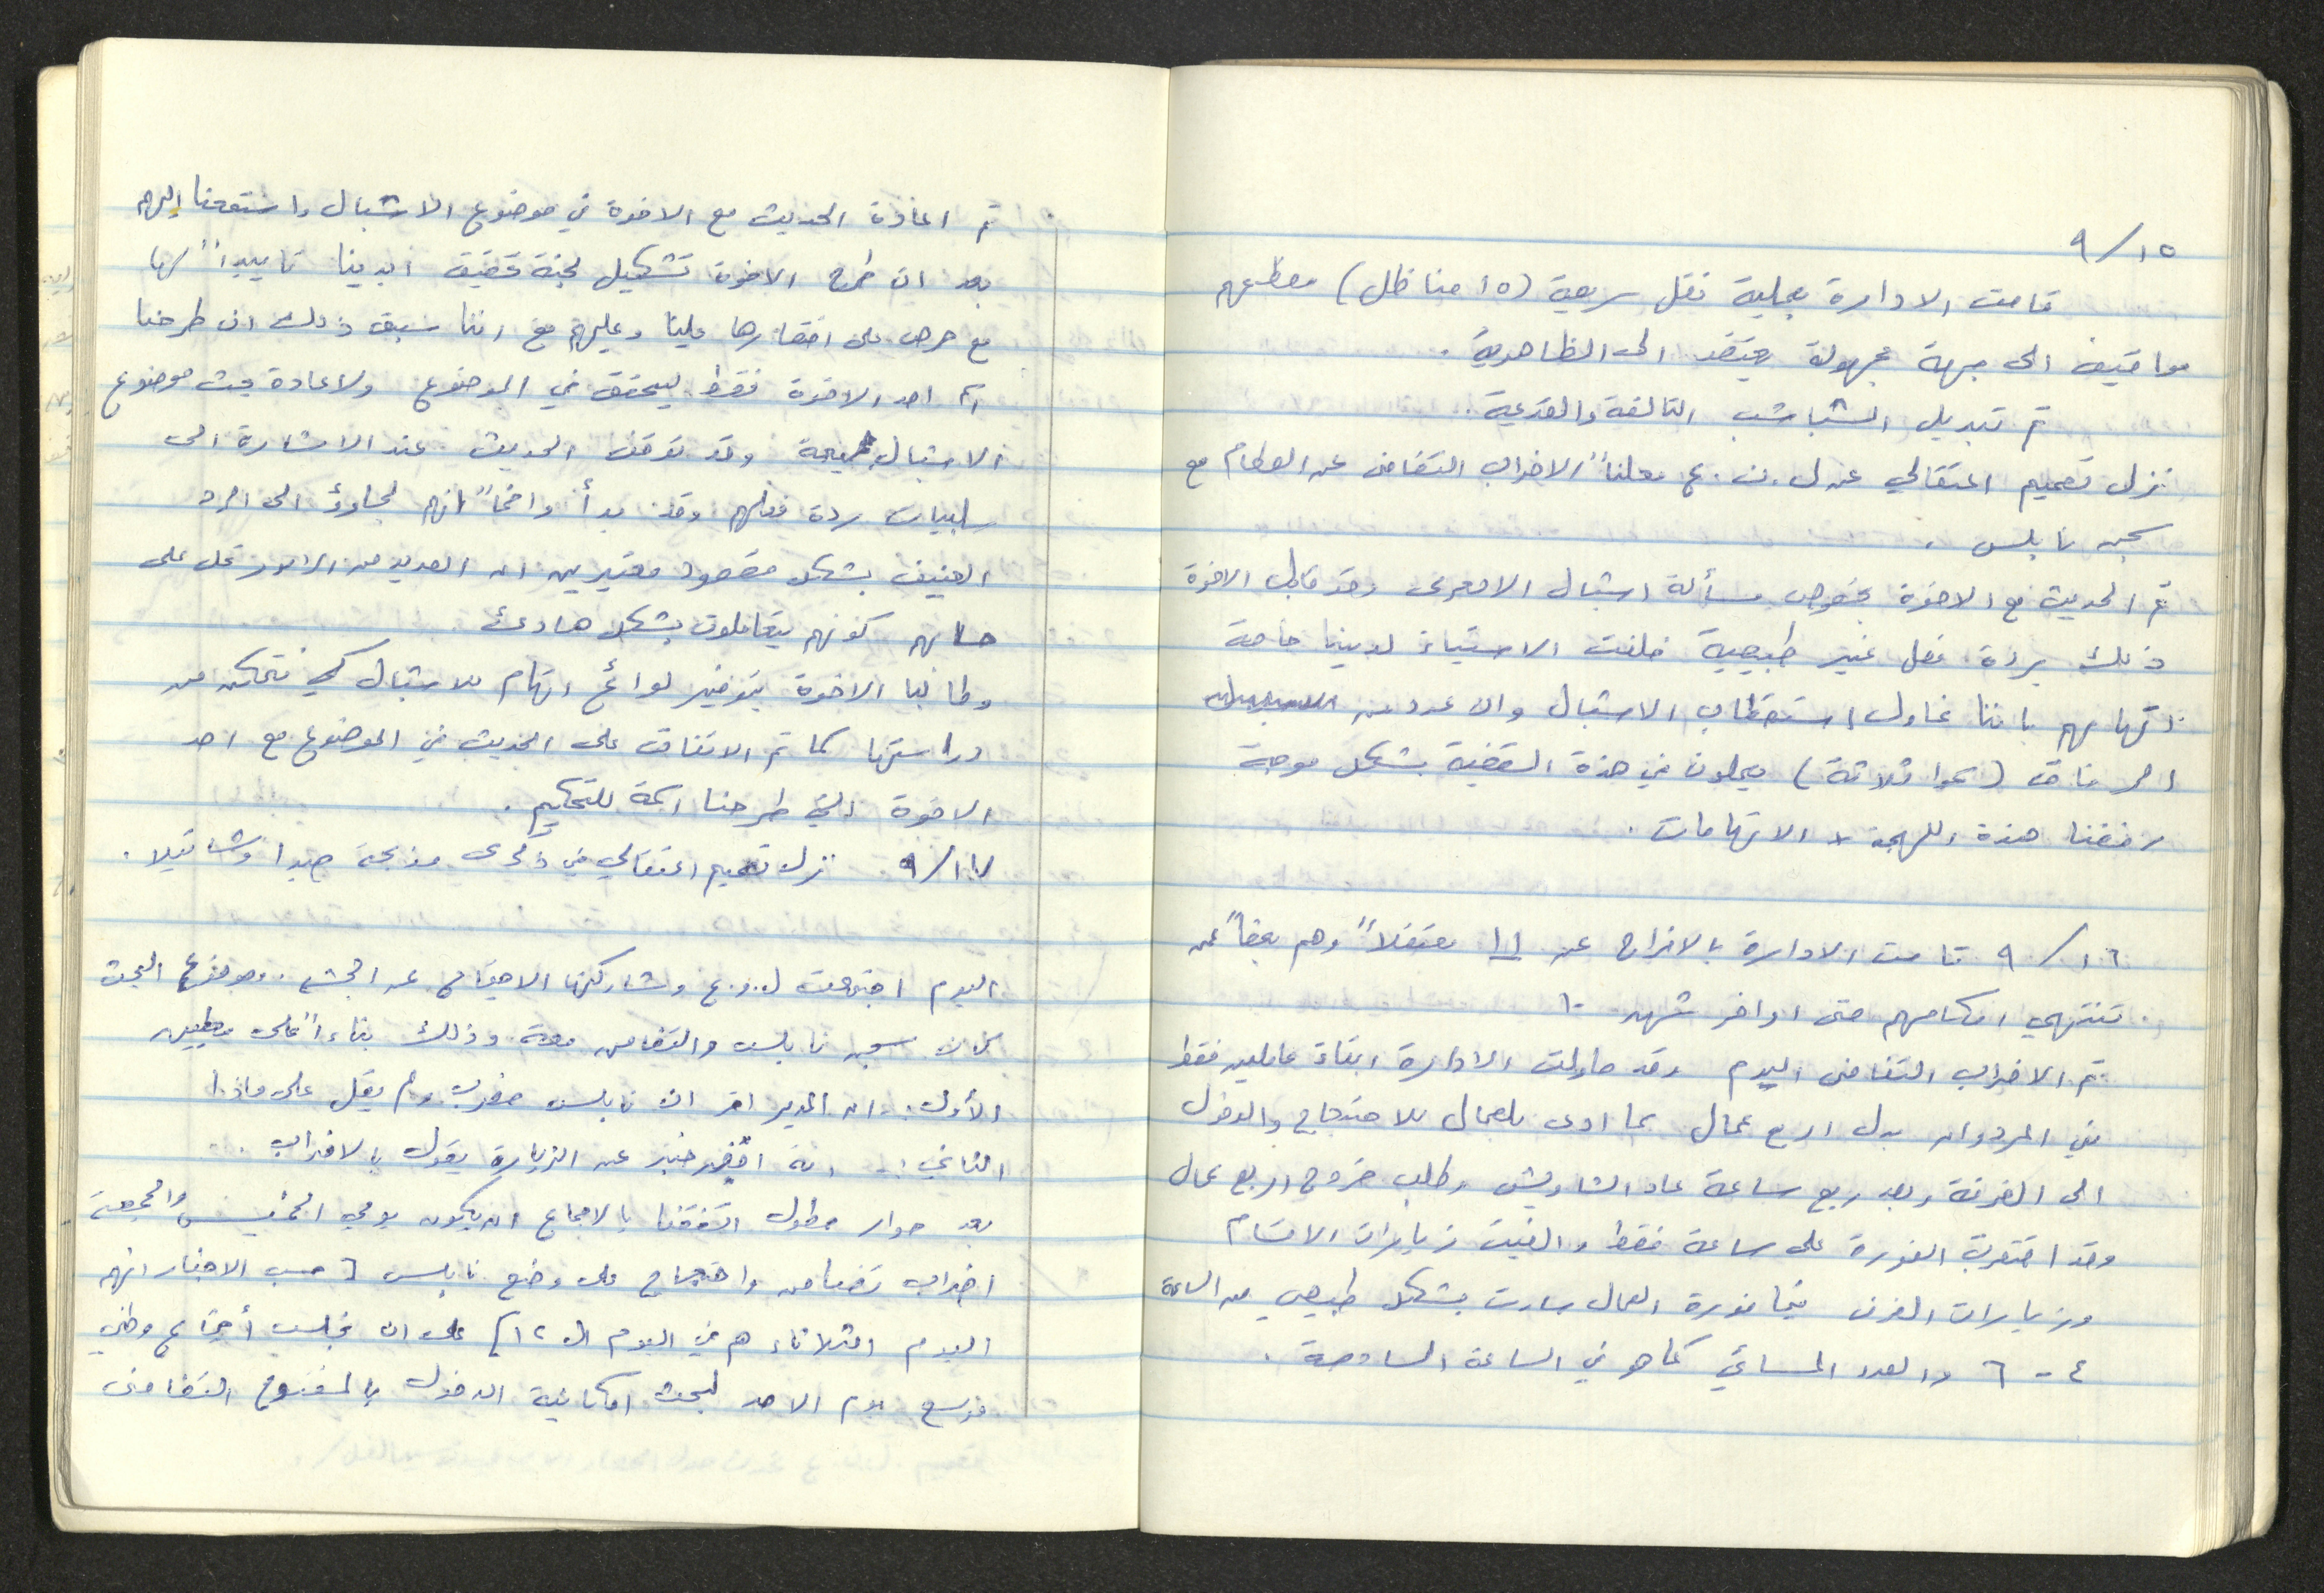 ٩/١٥
قامت الادارة بعملية نقل سريعية (١٥ مناظل) معظمهم
مواقيف الى جهة مجهولة يعتقد الى الظاهرية .
تم تبديل الشباشب التالفة والقديمة .
نزل تعميم اعتقالي عن ل . ن . ع معلناً الاضراب التضامني عن الطعام مع
سجن نابلس .
تم الحديث مع الاخوة بخصوص مسألة اشبال الامعرى وقد قابل الاخوة
ذلك بردة فعل غير طبيعية خلفت الاستياء لدينا خاصة
اتهامهم باننا نحاول استقطاب الاشبال وان عدد من
الرفاق (سموا ثلاثة) يعملون في هذة القضية بشكل موجة
رفضنا هذة اللهجة و الاتهامات .
٩/١٦ قامت الادارة بالافراج عن ١١ معتقلاً وهم بعضاً ممن
تنتهي احكامهم حتى اواخر شهر ١٠
تم الاضراب التضامني اليوم وقد حاولت الادارة ابقاء عاملين فقط
في المردوان بدل اربع عمال مما ادى بالعمال للاحتجاج والدخول
الى الغرفة وبعد ربع ساعة عاد الشاويش وطلب خروج اربع عمال
وقد اقتصرت الفورة على ساعة فقط والغيت زيارات الاقسام
وزيارات الغرف فيما فورة العمال سارت بشكل طبيعي من الساعة
٤ - ٦ والعدد المسائي كما هو في الساعة السادسة .
تم اعادة الحديث مع الاخوة في موضوع الاشبال واستمعنا اليهم
بعد ان طرح الاخوة تشكيل لجنة تحقيق ابدينا تاييداً لها
مع حرص على اقتصارها علينا وعليهم مع اننا سبق ذلك ان طرحنا
اسم احد الاخوة فقط ليحقق في الموضوع ولاعادة بحث موضوع
الاشبال وقد توقف الحديث عند الاشارة الى
سلبيات ردة فعلهم وقد بدأ واضحاً انهم لجاوؤ الى الرد
العنيف بشكل مقصود معتبرين ان العديد من الامور تحل على
حسابهم كونهم يتعاملون بشكل هادئ
وطالبنا الاخوة بتوفير لوائح اتهام للاشبال كي نتمكن من
دراستها كما تم الاتفاق على الحديث في الموضوع مع احد
الاخوة الذي طرحنا اسمة للتحكيم .
٩/١٧ نزل تعميم اعتقالي في ذكرى مذبحة صبرا وشاتيلا .
اليوم اجتمعت ل . و . ع وشاركتها الاجتماع عن الجبهة . وموضوع البحث
كان سجن نابلس والتضامن معة وذلك بناءاً على معطيين
الأول :- ان المدير اقر ان نابلس مضرب ولم يقل على ماذا
الثاني :- انة خبر عن الزيارة يقول بالاضراب .
بعد حوار مطول اتفقنا بالاجماع ان يكون يومي الخميس والجمعة
اضراب تضامن واحتجاج على وضع نابلس [ حسب الاخبار انهم
اليوم الثلاثاء هم في اليوم ال ١٢ ] على ان نجلس أجتماع وطني
موسع يوم الاحد لبحث امكانية الدخول بالمفتوح التضامني